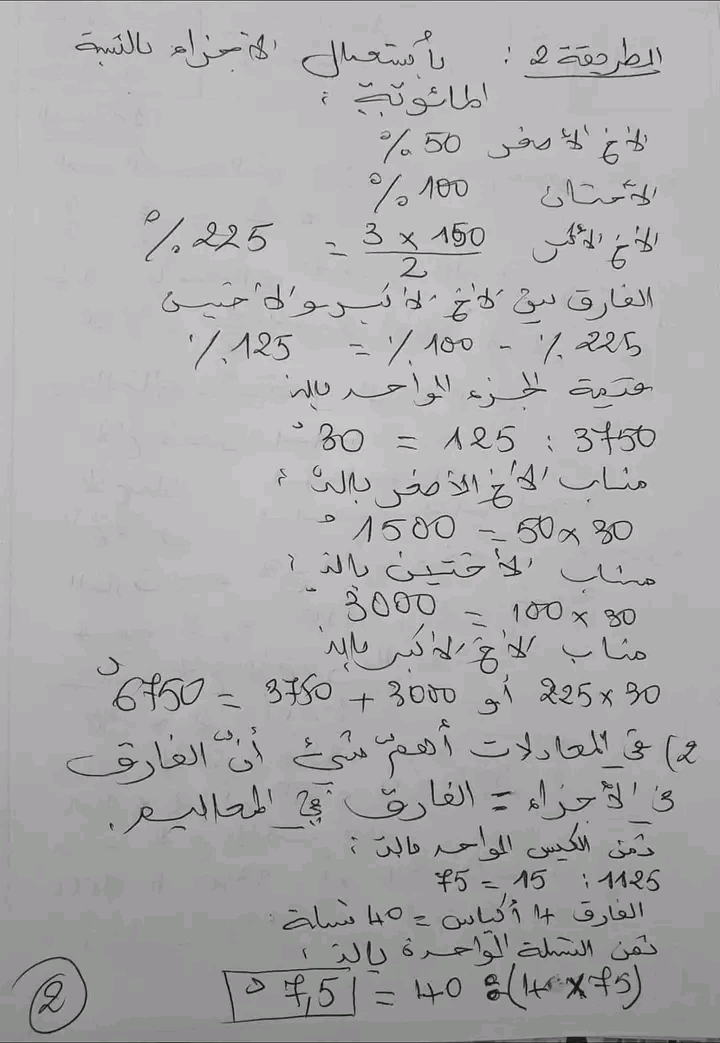 الطريقة 2 : بإستعمال الأجزاء بالنسبة
المائوية :
الأخ الأصغر 50 %
الأختان 100 %
الأخ الأكبر 3 x 150 / 2 = 225 %
الفارق بين الأخ الأكبر والأختين
225 % - 100 % = 125 %
قيمة الجزء الواحد بالد
3750 : 125 = 30 د
مناب الأخ الأصغر بالد :
30 x 50 = 1500 د
مناب الأختين بالد :
30 x 100 = 3000 د
مناب الأخ الأكبر بالد
30 x 225 أو 3000 + 3750 = 6750 د
2) في المعادلات أهمّ شيئ أنّ الفارق
في الأجزاء = الفارق في المعاليم .
ثمن الكيس الواحد بالد :
1125 : 15 = 75
الفارق 4 أكياس = 40 شتلة :
ثمن الشتلة الواحدة بالد :
(75 x 4) : 40 = 7,5 د
2